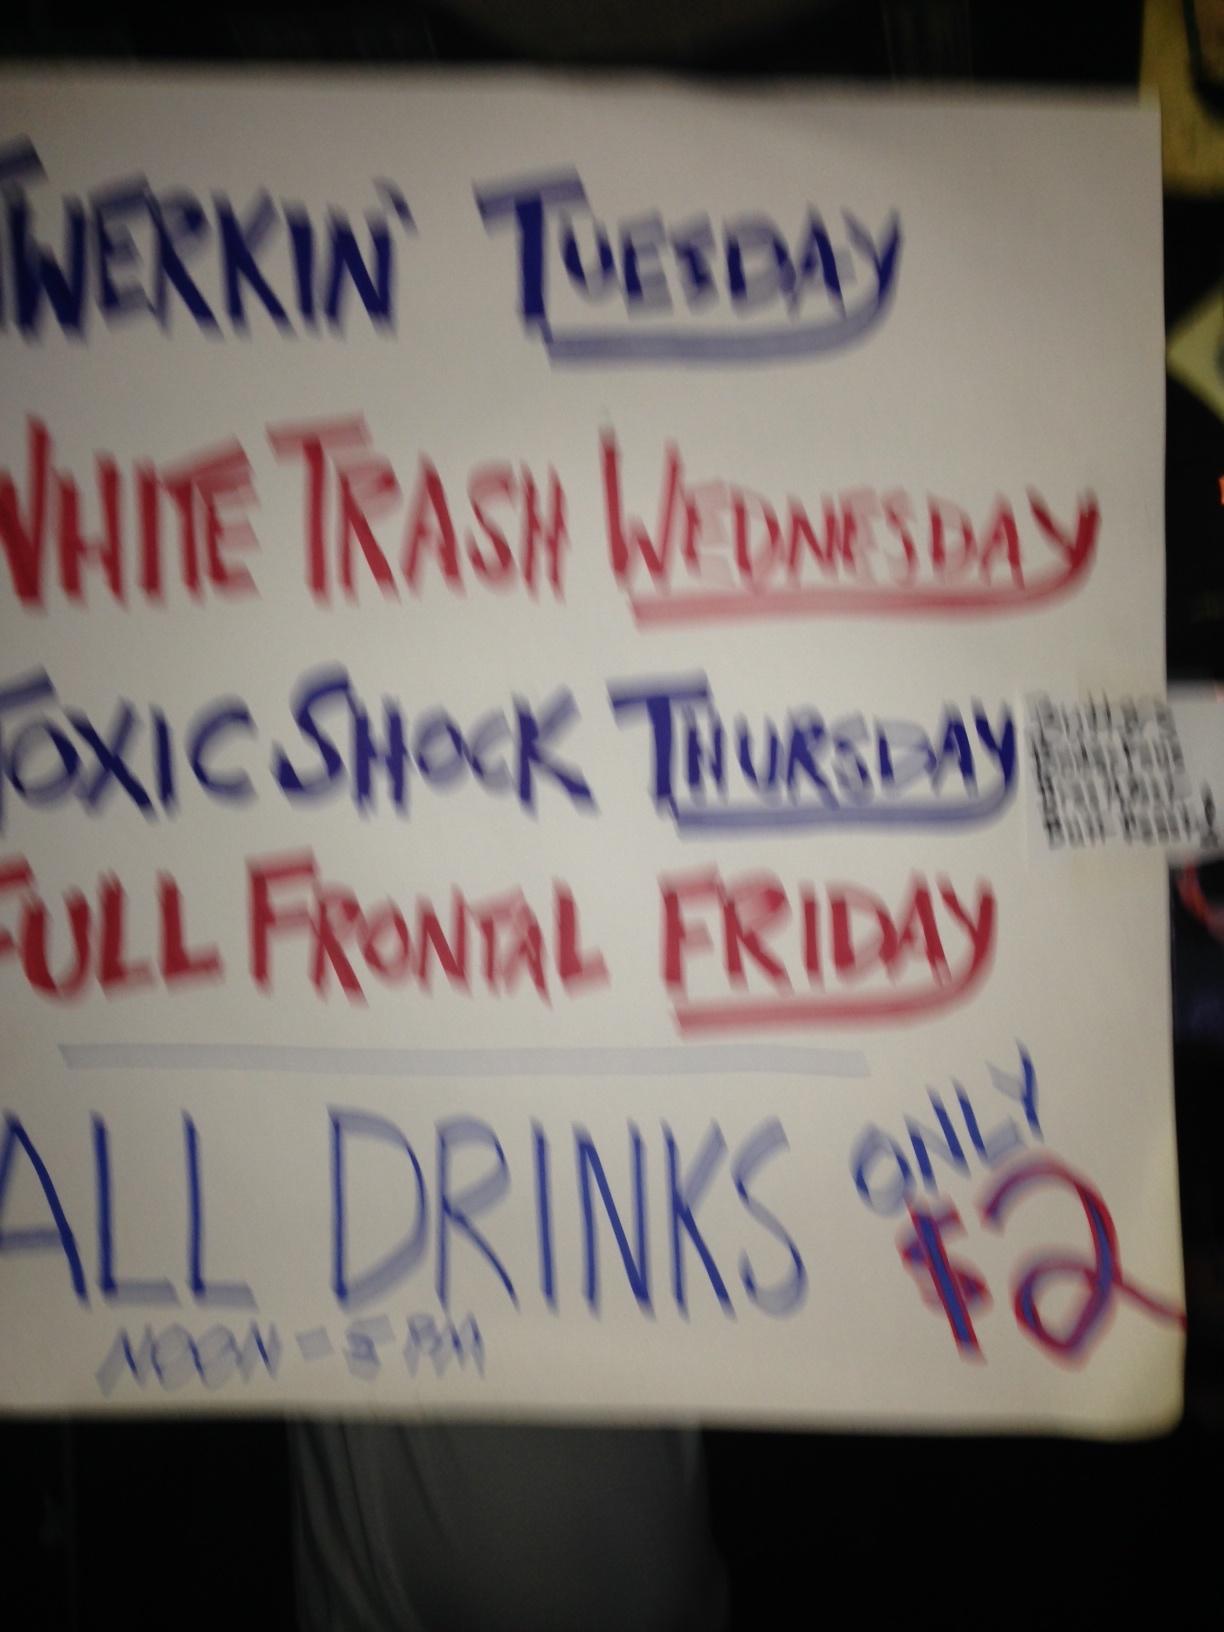 TWERKIN' TUESDAY
WHITE TRASH WEDNESDAY
TOXIC SHOCK THURSDAY
FULL FRONTAL FRIDAY
ALL DRINKS ONLY $2
NOON - 5 PM